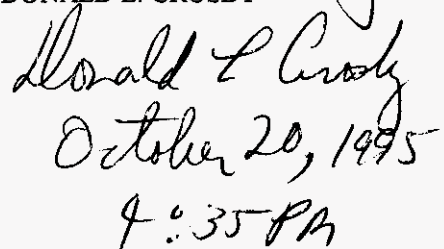 DONALD L. CROSBY
Donald L Crosby
October 20, 1995
4:35 PM